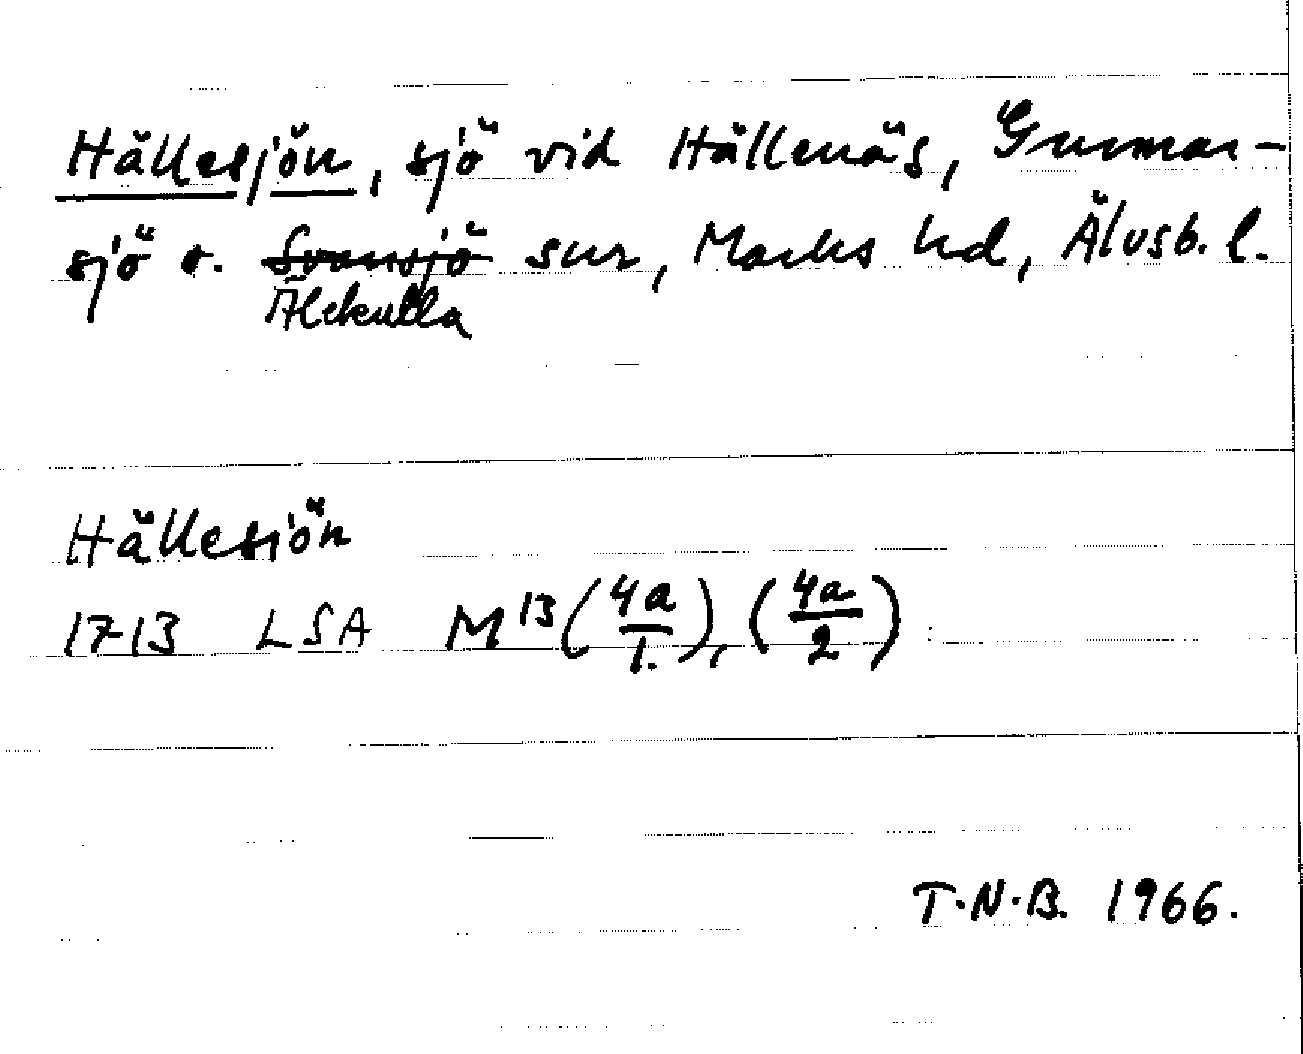 Hällesjön, sjö vid Hällenäs, Gunnar-
sjö o. Svansjö snr, Marks hd, Älvsb. l.
Älekulla
Hällesjön
1713 LSA M13 (4a/1.), (4a/2)
T.N.B. 1966.